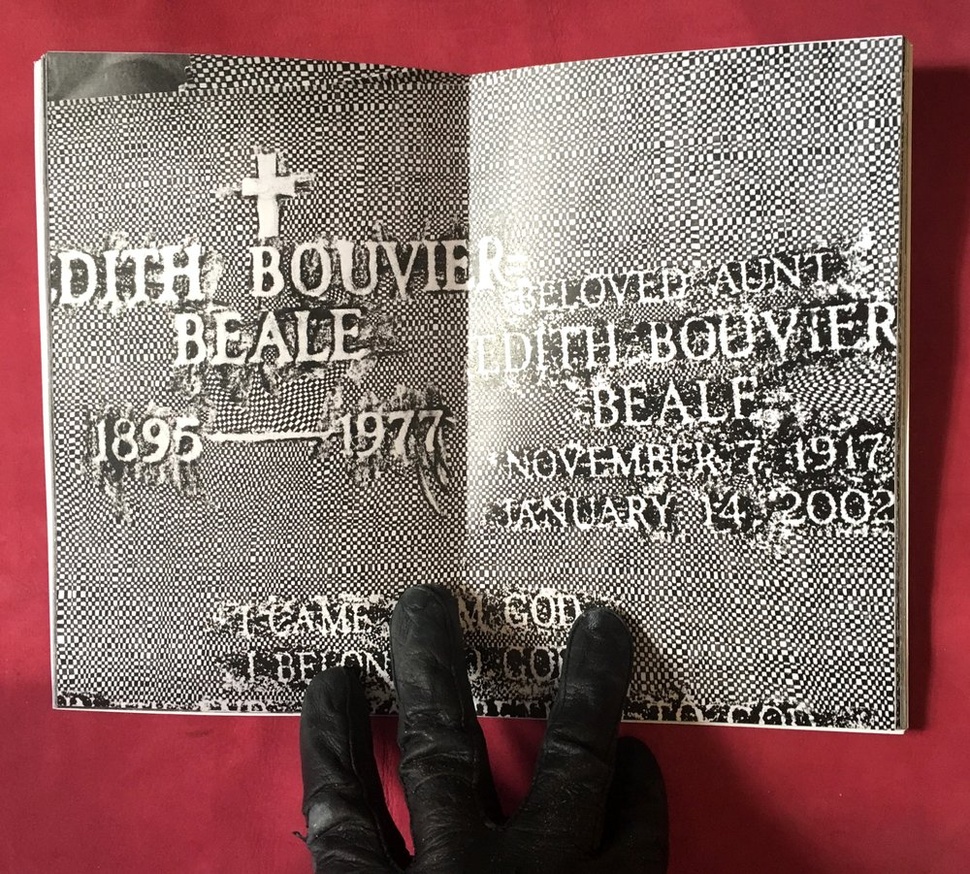 DITH BOUVIER
BEALE
1895 — 1977
BELOVED AUNT
EDITH BOUVIER
BEALE
NOVEMBER 7, 1917
JANUARY 14, 2002
I CAME M GOD
I BELON O GO
TO GOD